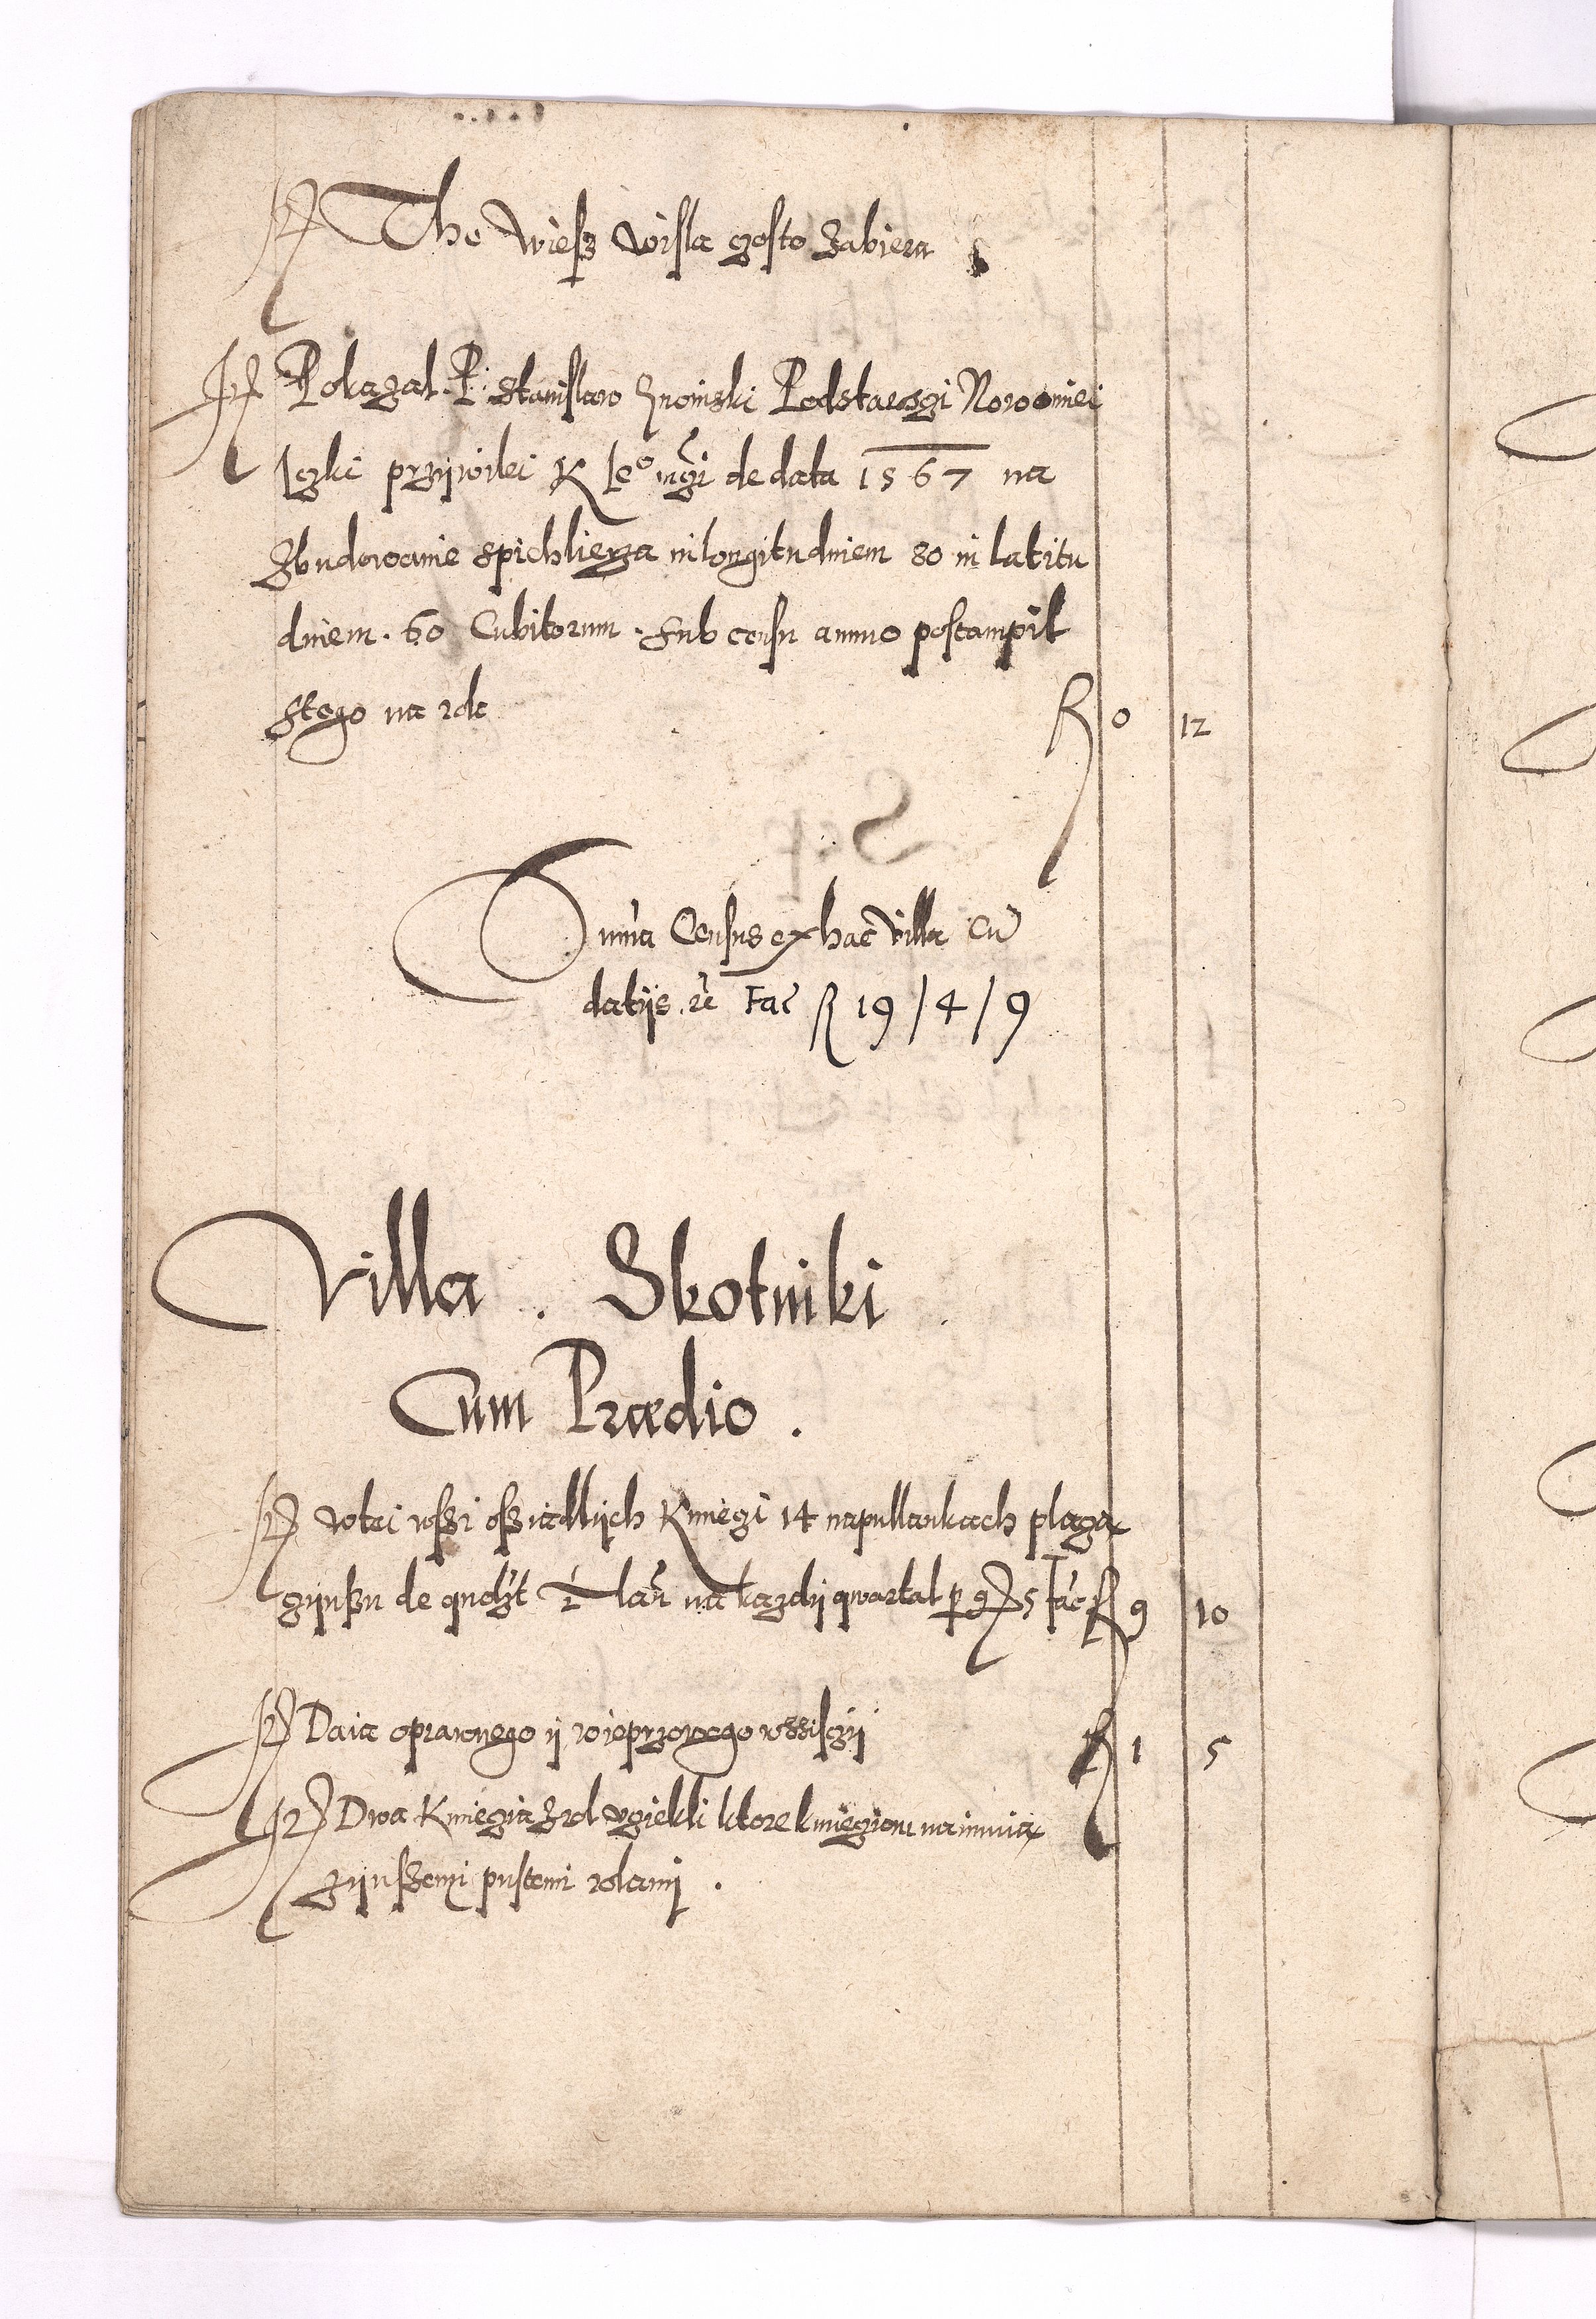 It Tho Wiesz Wisla gosto Zabiera
It Pokazal. P. Stanislaw Podstarosgi Nowomiei
sgki przÿwilei K Je° mgi de data 1567 na
Zbudowanie spichlierza in longitudinem 80 in latitu
dinem. 60 Cubitorum. Sub censu annuo postampil
stego na rok R 0 12
Suma Census ex hac villa Cu
datÿs rc Fac R 19/4/9
Villa. Skotniki.
Cum Prædio.
It wtei wszi osziadlÿch Kmiegi 14 napullankach plaga
gÿnszu de quolzt ½ lan na kazdÿ qwartal p gr 5 fac R 9 10
It Daia oprawnego ÿ wieprzowego wszisgÿ R 1 5
It Dwa Kmiegia Zrol vgiekli ktore kmiegiom naimuia
gÿnszemi pustemi rolamÿ.